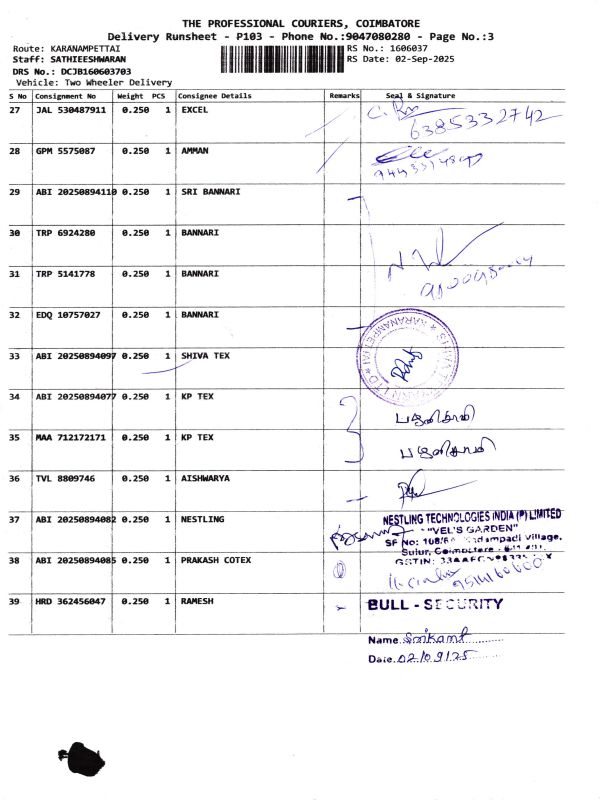 THE PROFESSIONAL COURIERS, COIMBATORE
Delivery Runsheet - P103 - Phone No.:9047080280 - Page No.:3
Route: KARANAMPETTAI RS No.: 1606037
Staff: SATHIEESHWARAN RS Date: 02-Sep-2025
DRS No.: DCJB160603703
Vehicle: Two Wheeler Delivery
S No Consignment No Weight PCS Consignee Details Remarks Seal & Signature
27 JAL 530487911 0.250 1 EXCEL
6385332742
28 GPM 5575087 0.250 1 AMMAN
29 ABI 20250894110 0.250 1 SRI BANNARI
30 TRP 6924280 0.250 1 BANNARI
31 TRP 5141778 0.250 1 BANNARI
32 EDQ 10757027 0.250 1 BANNARI
KARANAMPETTAI
33 ABI 20250894097 0.250 1 SHIVA TEX
34 ABI 20250894077 0.250 1 KP TEX
35 MAA 712172171 0.250 1 KP TEX
36 TVL 8809746 0.250 1 AISHWARYA
37 ABI 20250894082 0.250 1 NESTLING
NESTLING TECHNOLOGIES INDIA (P) LIMITED
"VEL'S GARDEN"
SF No: Village,
Sulur, Coimbatore
38 ABI 20250894085 0.250 1 PRAKASH COTEX
GSTIN:
39 HRD 362456047 0.250 1 RAMESH
BULL - SECURITY
Name Srikant
Date 02/09/25